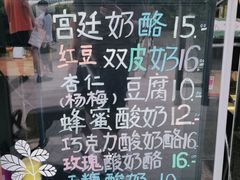 宫廷奶酪 15.
红豆双皮奶16.
杏仁
(杨梅)豆腐10.
蜂蜜酸奶12.
巧克力酸奶酪16.
玫瑰酸奶酪16.
酸奶10